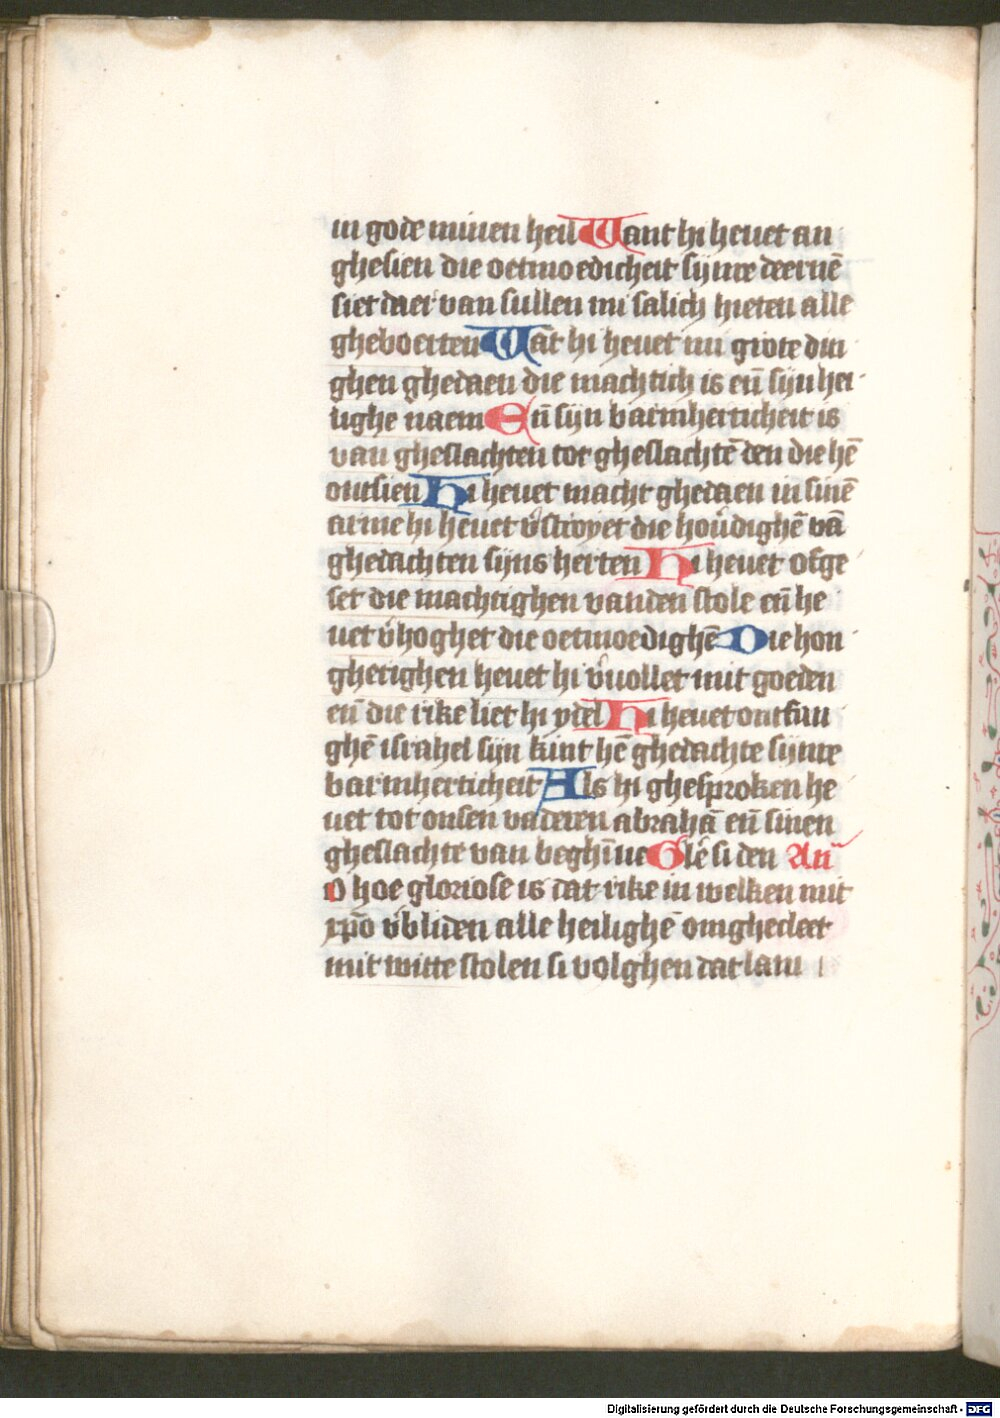 in gode minen heil Want hi heuet an
ghesien die oetmoedicheit sijnre deernē
siet daer van sullen mi salich hieten alle
gheboerten Wāt hi heuet mi grote din
ghen ghedaen die machtich is en̄ sijn hei
lighe naem En̄ sijn barmherticheit is
van gheslachten tot gheslachtē den die hē
ontsien Hi heuet macht ghedaen in sinē
arme hi heuet v̓stroyet die hou̓dighē vā
ghedachten sijns herten Hi heuet ofge
set die machtighen vanden stole en̄ he
uet v̓hoghet die oetmoedighē Die hon
gherighen heuet hi v̓uollet mit goeden
en̄ die rike liet hi ydel Hi heuet ontfan
ghē israhel sijn kint hē ghedachte sijnre
barmherticheit Als hi ghesproken he
uet tot onsen vaderen abrahā en̄ sinen
gheslachte van beghīne Glē si den An̄
O hoe gloriose is dat rike in welken mit
xp̄o v̓bliden alle heilighē omghecleet
mit witte stolen si volghen dat lam
Digitalisierung gefördert durch die Deutsche Forschungsgemeinschaft - DFG